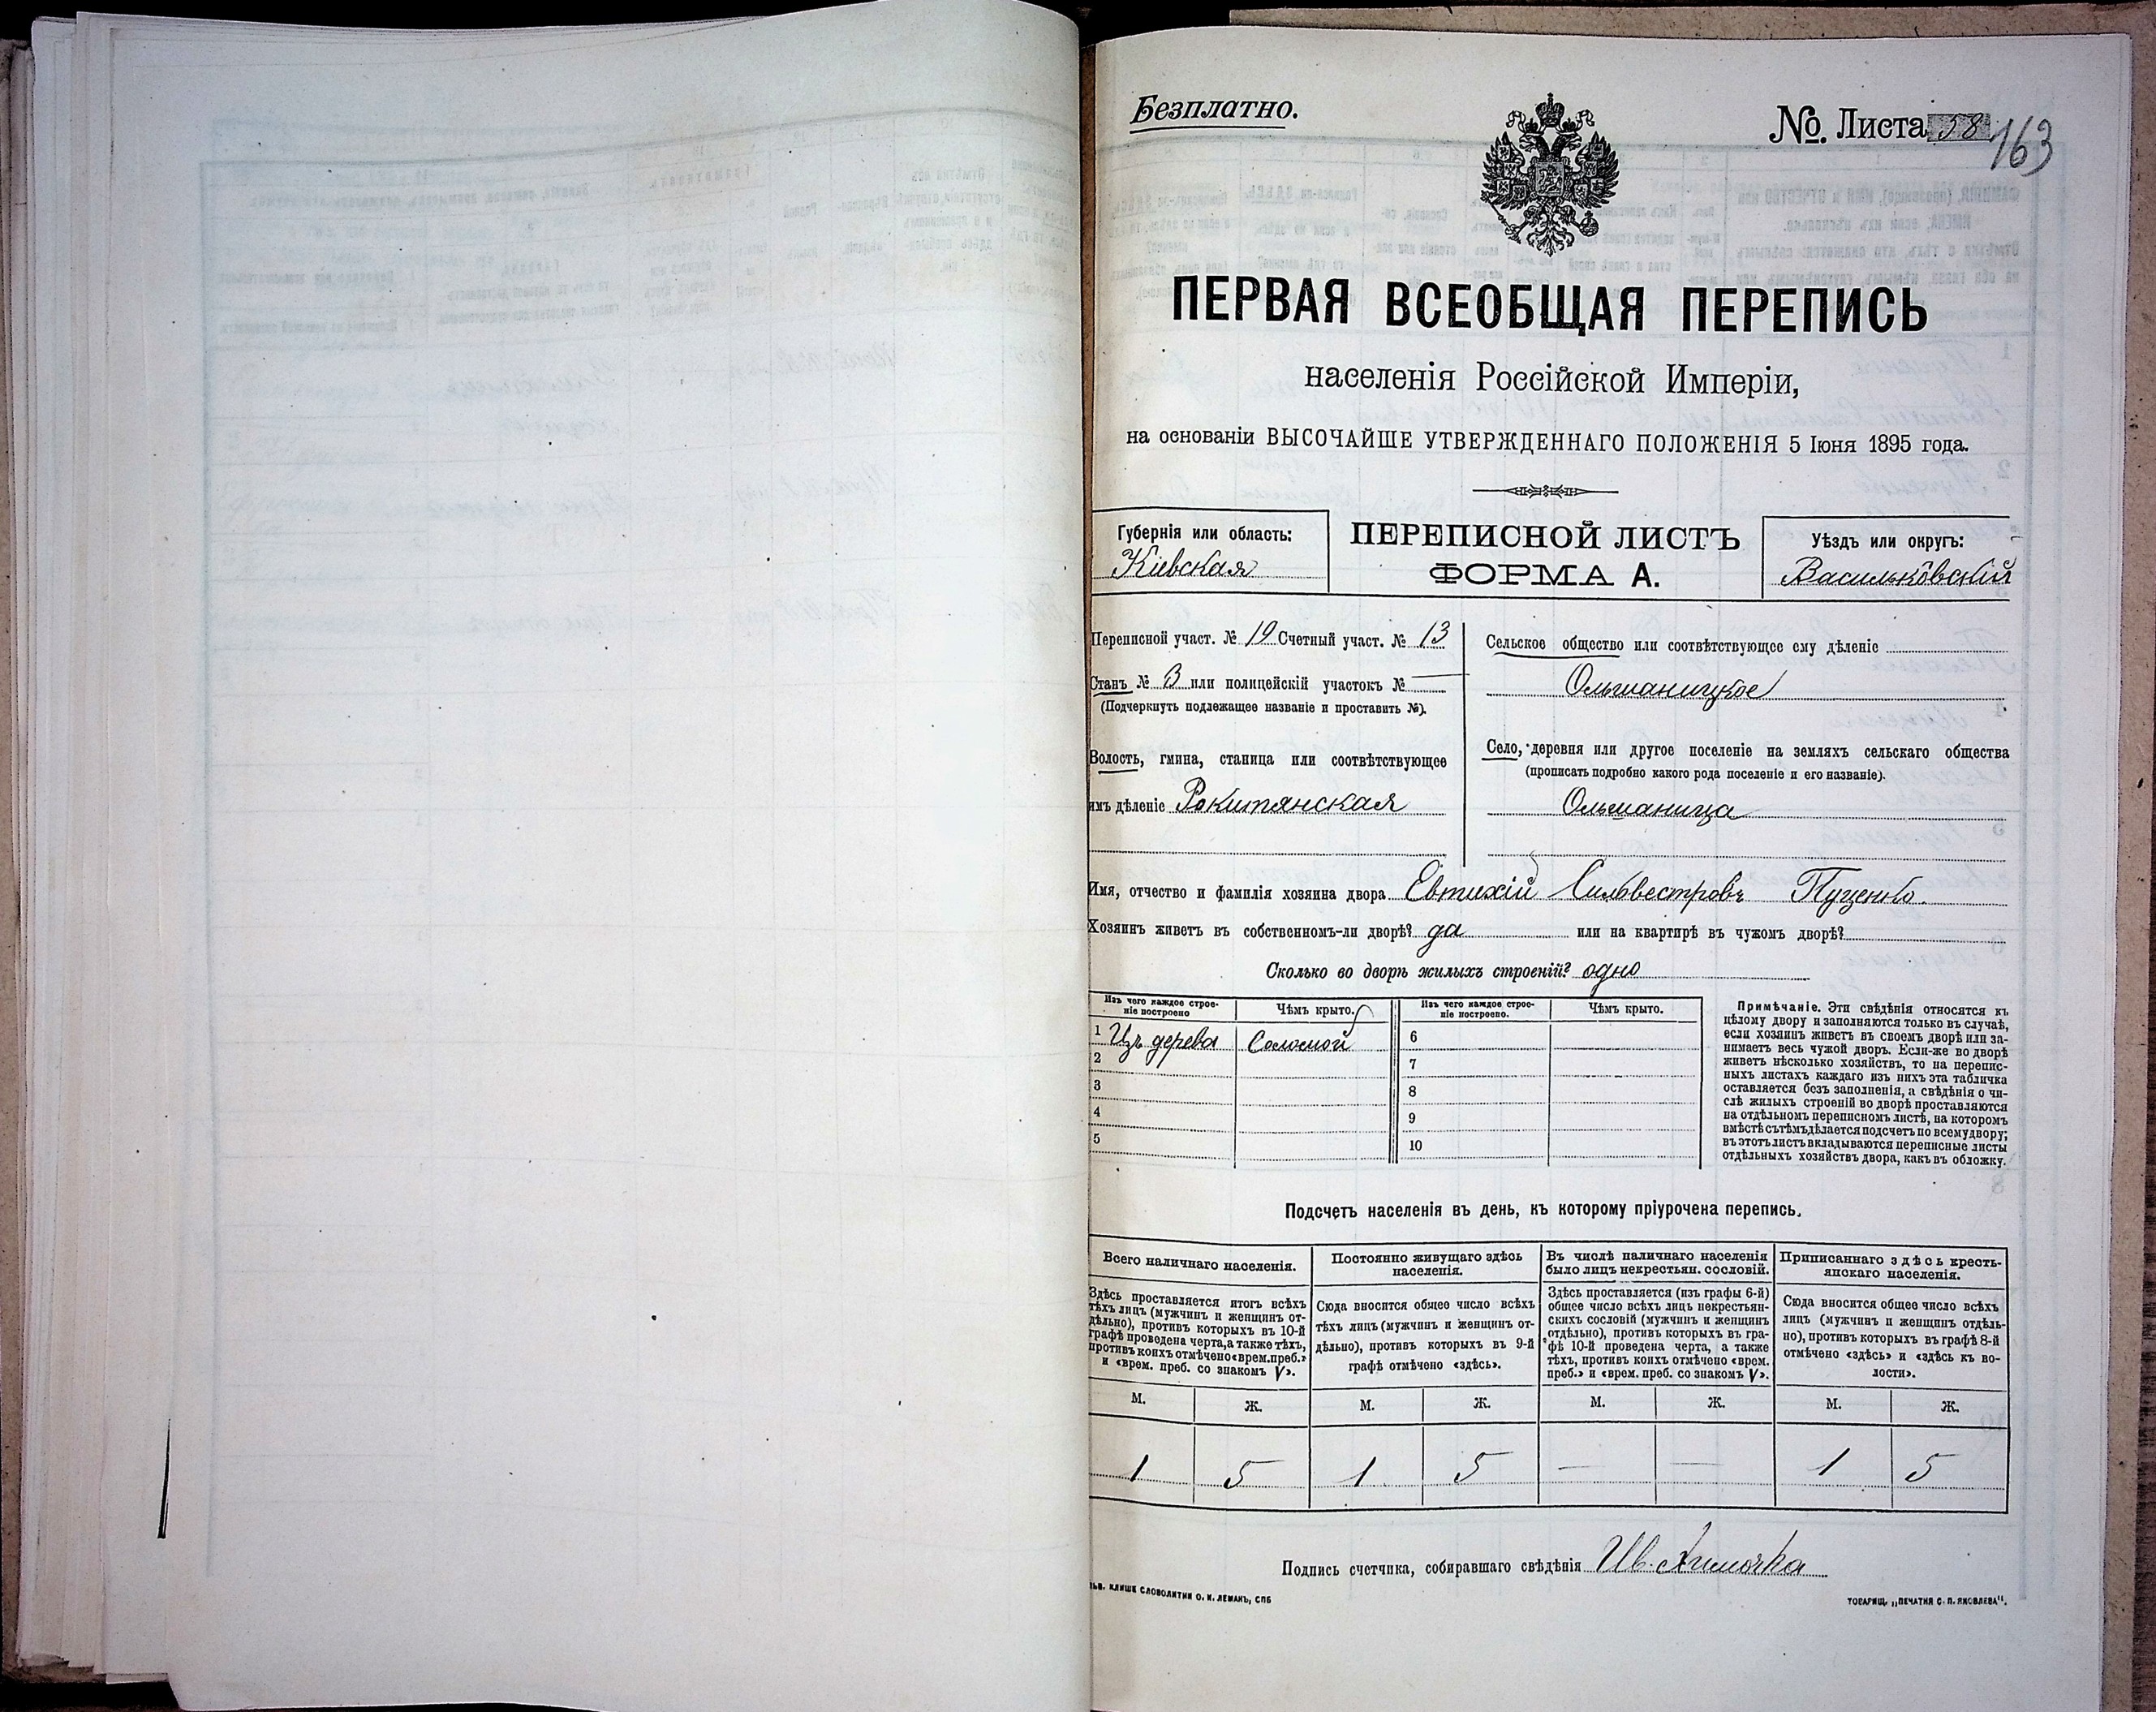 Безплатно.
№. Листа 58
163
ПЕРВАЯ ВСЕОБЩАЯ ПЕРЕПИСЬ
населенія Россійской Имперіи,
на основаніи ВЫСОЧАЙШЕ УТВЕРЖДЕННАГО ПОЛОЖЕНІЯ 5 Іюня 1895 года.
Губернія или область:
Кіевская
ПЕРЕПИСНОЙ ЛИСТЪ
ФОРМА А.
Уѣздъ или округъ:
Васильковскій
Переписной участ. № 19 Счетный участ. № 13
Станъ № 3 или полицейскій участокъ № —
(Подчеркнуть подлежащее названіе и проставить №).
Волость, гмина, станица или соотвѣтствующее
имъ дѣленіе Рокитянская
Сельское общество или соотвѣтствующее ему дѣленіе
Ольшаницкое
Село, деревня или другое поселеніе на земляхъ сельскаго общества
(прописать подробно какого рода поселеніе и его названіе).
Ольшаница
Имя, отчество и фамилія хозяина двора Евтихій Сильвестровъ Пуценко.
Хозяинъ живетъ въ собственномъ-ли дворѣ? да или на квартирѣ въ чужомъ дворѣ?
Сколько во дворѣ жилыхъ строеній? одно
Изъ чего каждое строе-
ніе построено
Чѣмъ крыто.
Изъ чего каждое строе-
ніе построено.
Чѣмъ крыто.
1 Изъ дерева Соломой 6
2 7
3 8
4 9
5 10
Примѣчаніе. Эти свѣдѣнія относятся къ
цѣлому двору и заполняются только въ случаѣ,
если хозяинъ живетъ въ своемъ дворѣ или за-
нимаетъ весь чужой дворъ. Если-же во дворѣ
живетъ нѣсколько хозяйствъ, то на перепис-
ныхъ листахъ каждаго изъ нихъ эта табличка
оставляется безъ заполненія, а свѣдѣнія о чи-
слѣ жилыхъ строеній во дворѣ проставляются
на отдѣльномъ переписномъ листѣ, на которомъ
вмѣстѣ съ тѣмъ дѣлается подсчетъ по всему двору;
въ этотъ листъ вкладываются переписные листы
отдѣльныхъ хозяйствъ двора, какъ въ обложку.
Подсчетъ населенія въ день, къ которому пріурочена перепись.
Всего наличнаго населенія.
Здѣсь проставляется итогъ всѣхъ
тѣхъ лицъ (мужчинъ и женщинъ от-
дѣльно), противъ которыхъ въ 10-й
графѣ проведена черта, а также тѣхъ,
противъ коихъ отмѣчено «врем. преб.»
и «врем. преб. со знакомъ V».
Постоянно живущаго здѣсь
населенія.
Сюда вносится общее число всѣхъ
тѣхъ лицъ (мужчинъ и женщинъ от-
дѣльно), противъ которыхъ въ 9-й
графѣ отмѣчено «здѣсь».
Въ числѣ наличнаго населенія
было лицъ некрестьян. сословій.
Здѣсь проставляется (изъ графы 6-й)
общее число всѣхъ лицъ некрестьян-
скихъ сословій (мужчинъ и женщинъ
отдѣльно), противъ которыхъ въ гра-
фѣ 10-й проведена черта, а также
тѣхъ, противъ коихъ отмѣчено «врем.
преб.» и «врем. преб. со знакомъ V».
Приписаннаго здѣсь кресть-
янскаго населенія.
Сюда вносится общее число всѣхъ
лицъ (мужчинъ и женщинъ отдѣль-
но), противъ которыхъ въ графѣ 8-й
отмѣчено «здѣсь» и «здѣсь къ во-
лости».
М. Ж. М. Ж. М. Ж. М. Ж.
1 5 1 5 — — 1 5
Подпись счетчика, собиравшаго свѣдѣнія Ив.
КЛИШЕ СЛОВОЛИТНИ О. И. ЛЕМАНЪ, СПБ
ТОВАРИЩ. „ПЕЧАТНЯ С. П. ЯКОВЛЕВА".